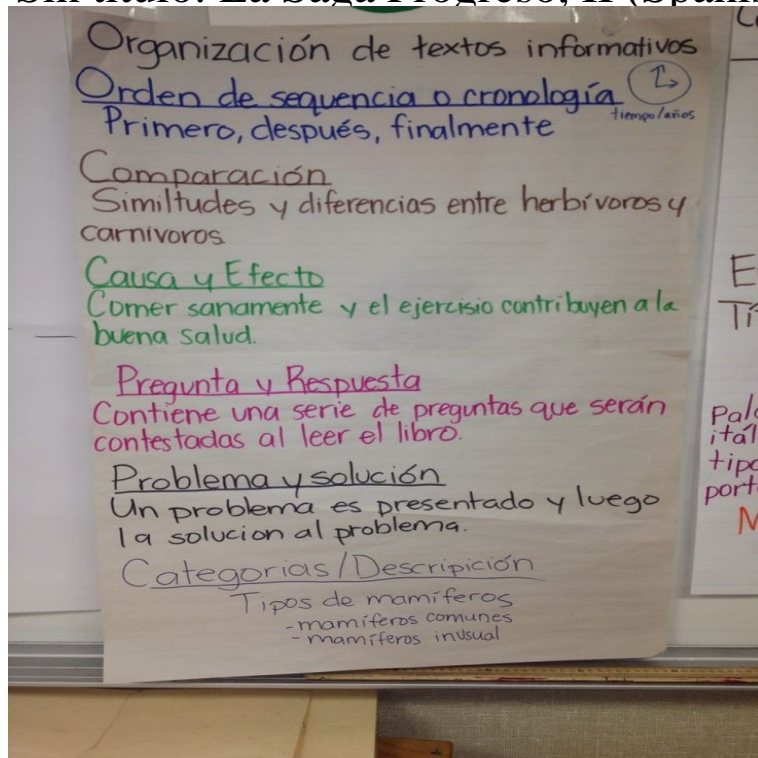 Sin título: La Saga Progreso, II (Spanis
Organización de textos informativos
Orden de sequencia o cronología
tiempo/años
Primero, después, finalmente
Comparación
Similtudes y diferencias entre herbívoros y
carnivoros
Causa y Efecto
Comer sanamente y el ejercisio contribuyen a la
buena salud.
Pregunta y Respuesta
Contiene una serie de preguntas que serán
contestadas al leer el libro.
Problema y solución
Un problema es presentado y luego
la solucion al problema.
Categorias/Descripición
Tipos de mamíferos
-mamíferos comunes
-mamíferos inusual